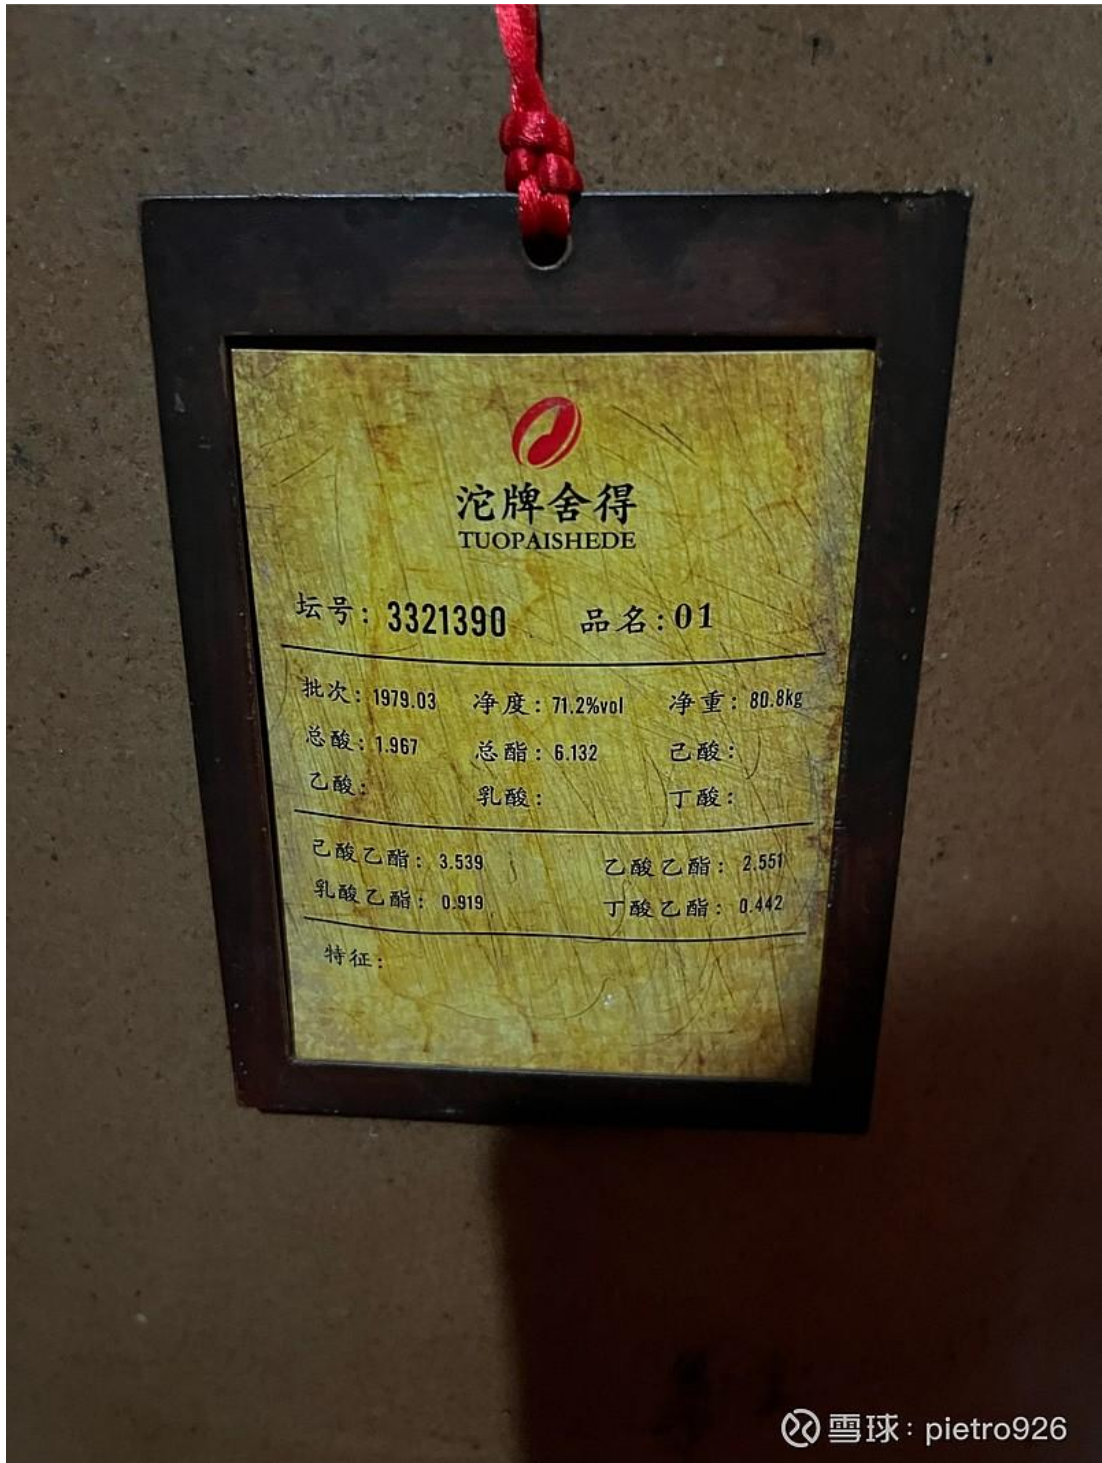 沱牌舍得
TUOPAISHEDE
坛号：3321390 品名：01
批次：1979.03 净度：71.2%vol 净重：80.8kg
总酸：1.967 总酯：6.132 己酸：
乙酸： 乳酸： 丁酸：
己酸乙酯：3.539 乙酸乙酯：2.551
乳酸乙酯：0.919 丁酸乙酯：0.442
特征：
雪球：pietro926